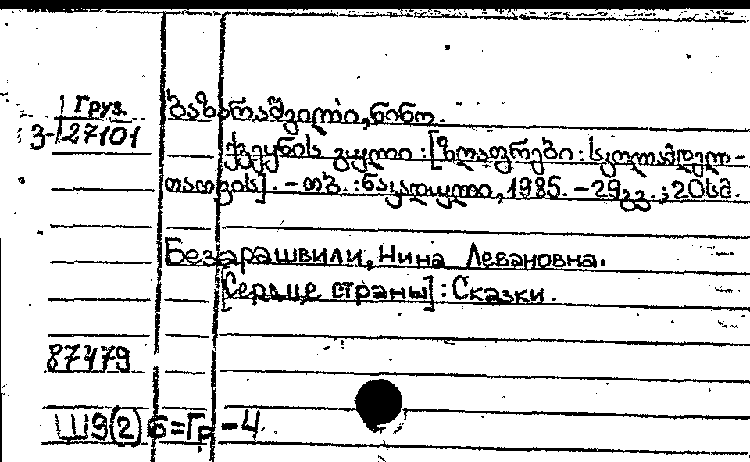 Груз.
ბაზარაშვილი, ნინო.
3-27101
ქვეყნის გული : [ზღაპრები : სკოლამდელ-
თათვის]. – თბ. : ნაკადული, 1985. – 29გვ. ; 20სმ.
Безарашвили, Нина Левановна.
[Сердце страны] : Сказки.
87479
Ш9(2)6=Гр – 4